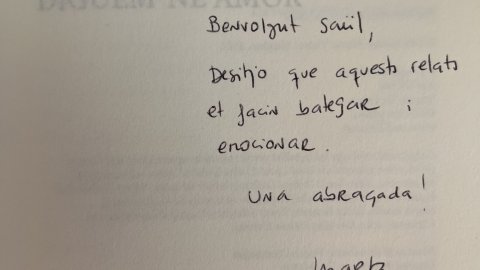 Benvolgut Saül,
Desitjo que aquests relats
et facin bategar i
emocionar.
Una abraçada!